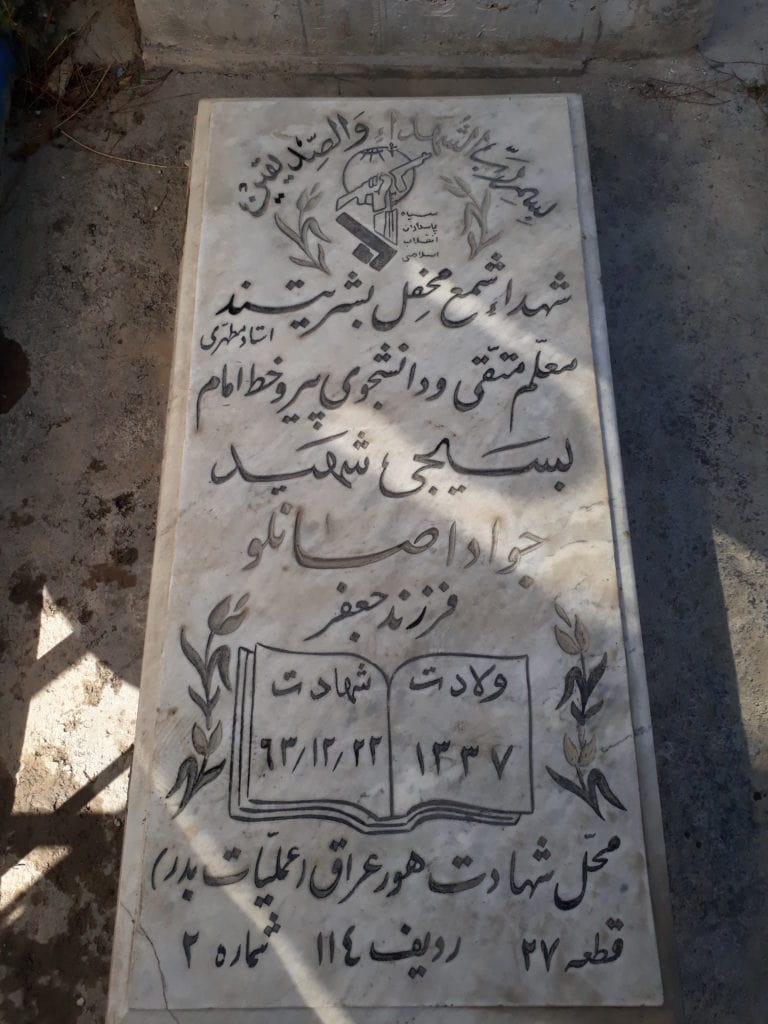 بسم رب الشهداء والصدیقین
سپاه
پاسداران
انقلاب
اسلامی
شهداء شمع محفل بشریتند
استاد مطهری
معلّم متّقی و دانشجوی پیرو خط امام
بسیجی شهید
جواد اصانلو
فرزند جعفر
ولادت
۱۳۳۷
شهادت
۶۳/۱۲/۲۲
محلّ شهادت هور عراق (عملیّات بدر)
قطعه ۲۷ ردیف ۱۱٤ شماره ۲